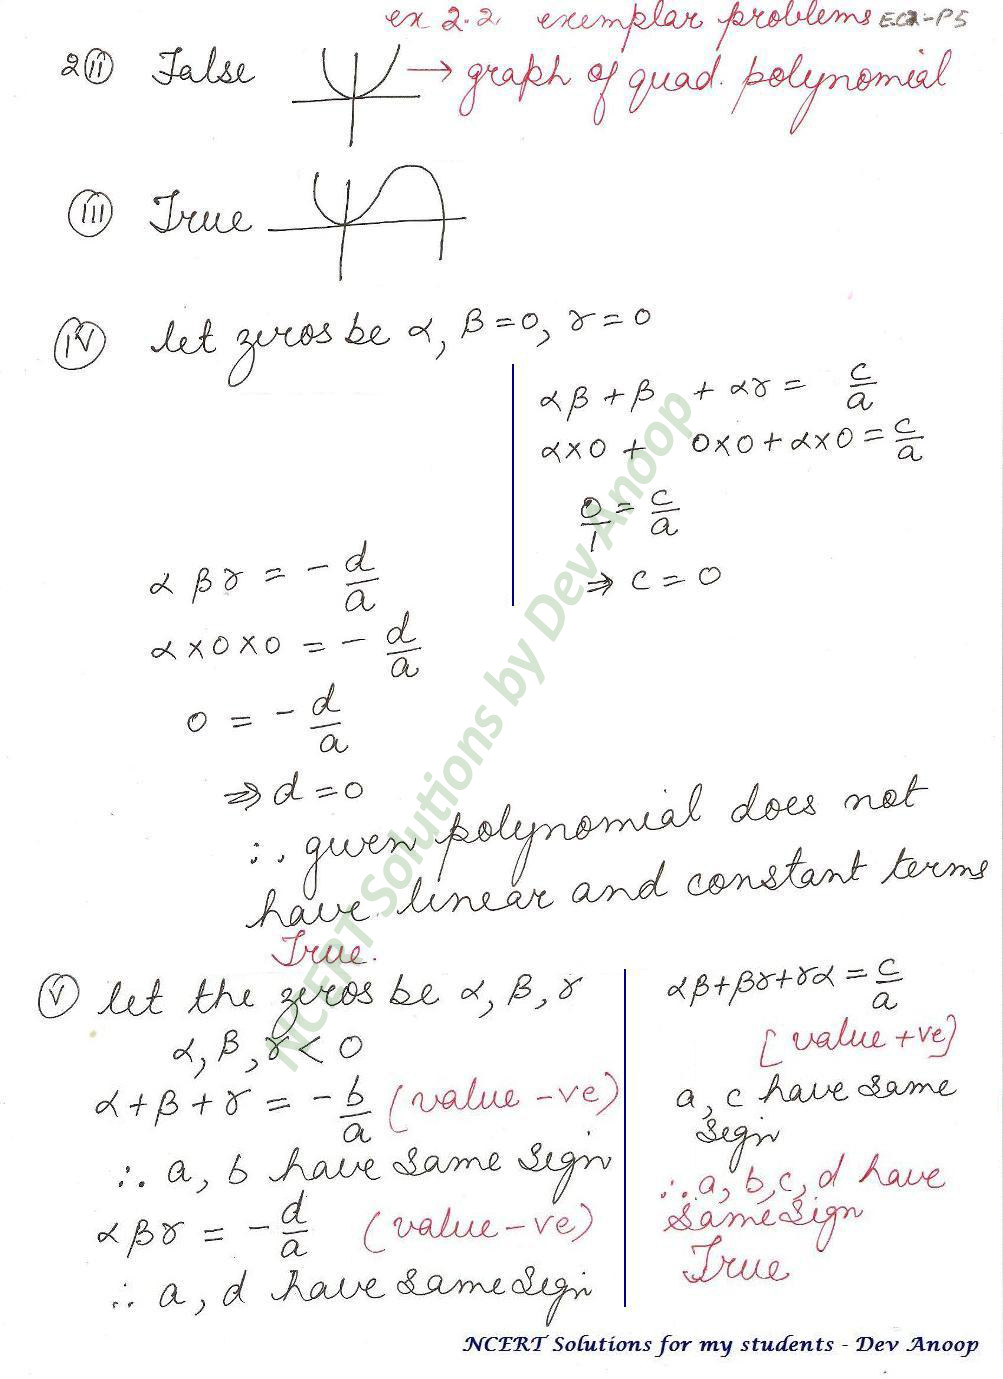 ex 2.2. exemplar problems EC2-P5
2(ii) False → graph of quad. polynomial
(iii) True
(iv) let zeros be α, β=0, γ=0
αβ + β + αγ = c/a
α×0 + 0×0 + α×0 = c/a
0/1 = c/a
⇒ c = 0
αβγ = - d/a
α×0×0 = - d/a
0 = - d/a
⇒ d = 0
∴ given polynomial does not
have linear and constant terms
True.
(v) let the zeros be α, β, γ
α, β, γ < 0
α + β + γ = - b/a (value -ve)
∴ a, b have same sign
αβγ = - d/a (value -ve)
∴ a, d have same sign
αβ+βγ+γα = c/a
[value +ve]
a, c have same
sign
∴ a, b, c, d have
same sign
True
NCERT Solutions by Dev Anoop
NCERT Solutions for my students - Dev Anoop